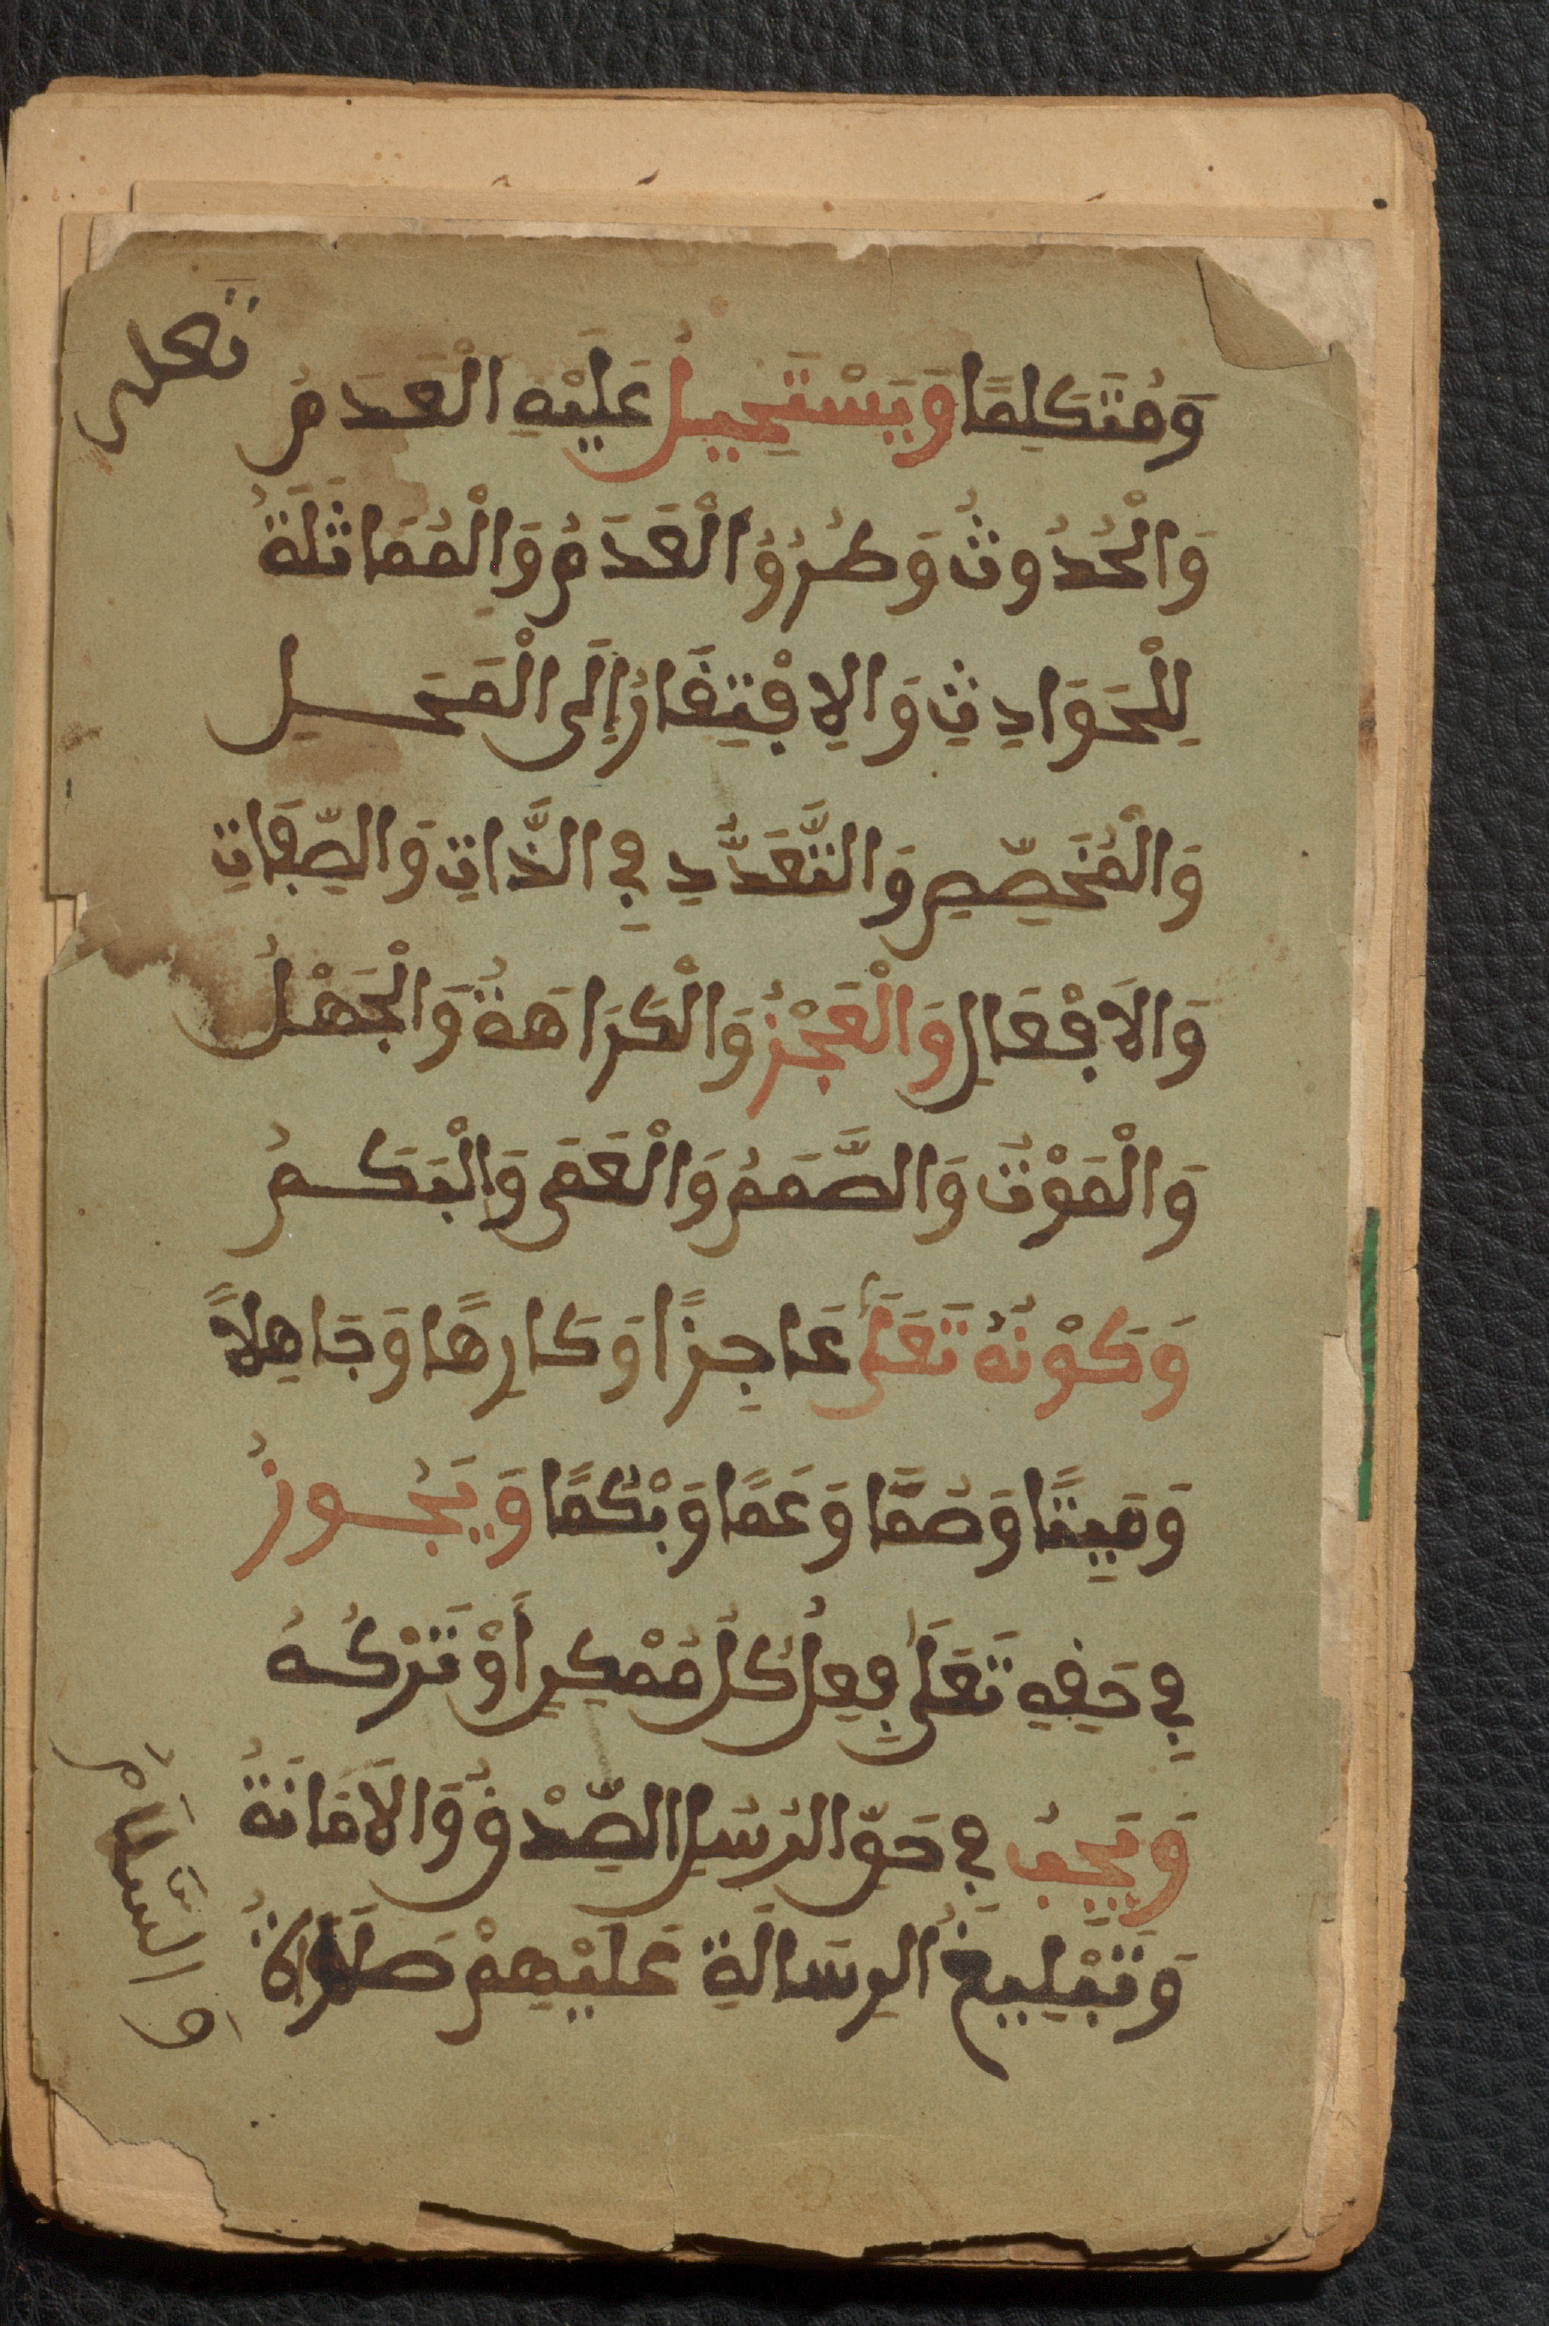 تعلى
وَمُتَكَلِمًا وَيَسْتَحِيلُ عَلَيْهِ الْعَدَمُ
وَالْحُدُوثُ وَطُرُوُّ الْعَدَمِ وَالْمُمَاثَلَةُ
لِلْحَوَادِثِ وَالِافْتِقَارُ إِلَى الْمَحَلِ
وَالْمُخَصِّصِ وَالتَّعَدُّدِ فِي الذَّاتِ وَالصِّفَاتِ
وَالَافْعَالِ وَالْعَجْزُ وَالْكَرَاهَةُ وَالْجَهْلُ
وَالْمَوْتُ وَالصَّمَمُ وَالْعَمَى وَالْبَكَمُ
وَكَوْنُهُ تَعَلَى عَاجِزًا وَكَارِهًا وَجَاهِلًا
وَمَيِتًا وَصَمًّا وَعَمًا وَبْكَمًا وَيَجُوزُ
فِي حَقِهِ تَعَلَى فِعِلُ كُلِ مُمْكِنٍ أَوْ تَرْكُهُ
وَيَجِبُ فِي حَقِّ الرُسُلِ الصِّدْقُ وَالَامَانَةُ
وَتَبْلِيغُ الرِسَالَةِ عَلَيْهِمْ صَلَوَاةُ
وَالسَّلَامُ